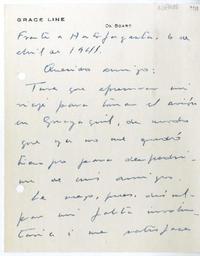 GRACE LINE
On Board
Frente a Antofagasta, 6 de
abril de 1941.
Querido amigo:
Tuve que apresurar mi
viaje para tomar el avión
en Guayaquil, de modo
que ya no me quedó
tiempo para despedir-
me de mis amigos.
Le ruego, pues, discul-
par mi falta involun-
taria i me satisface